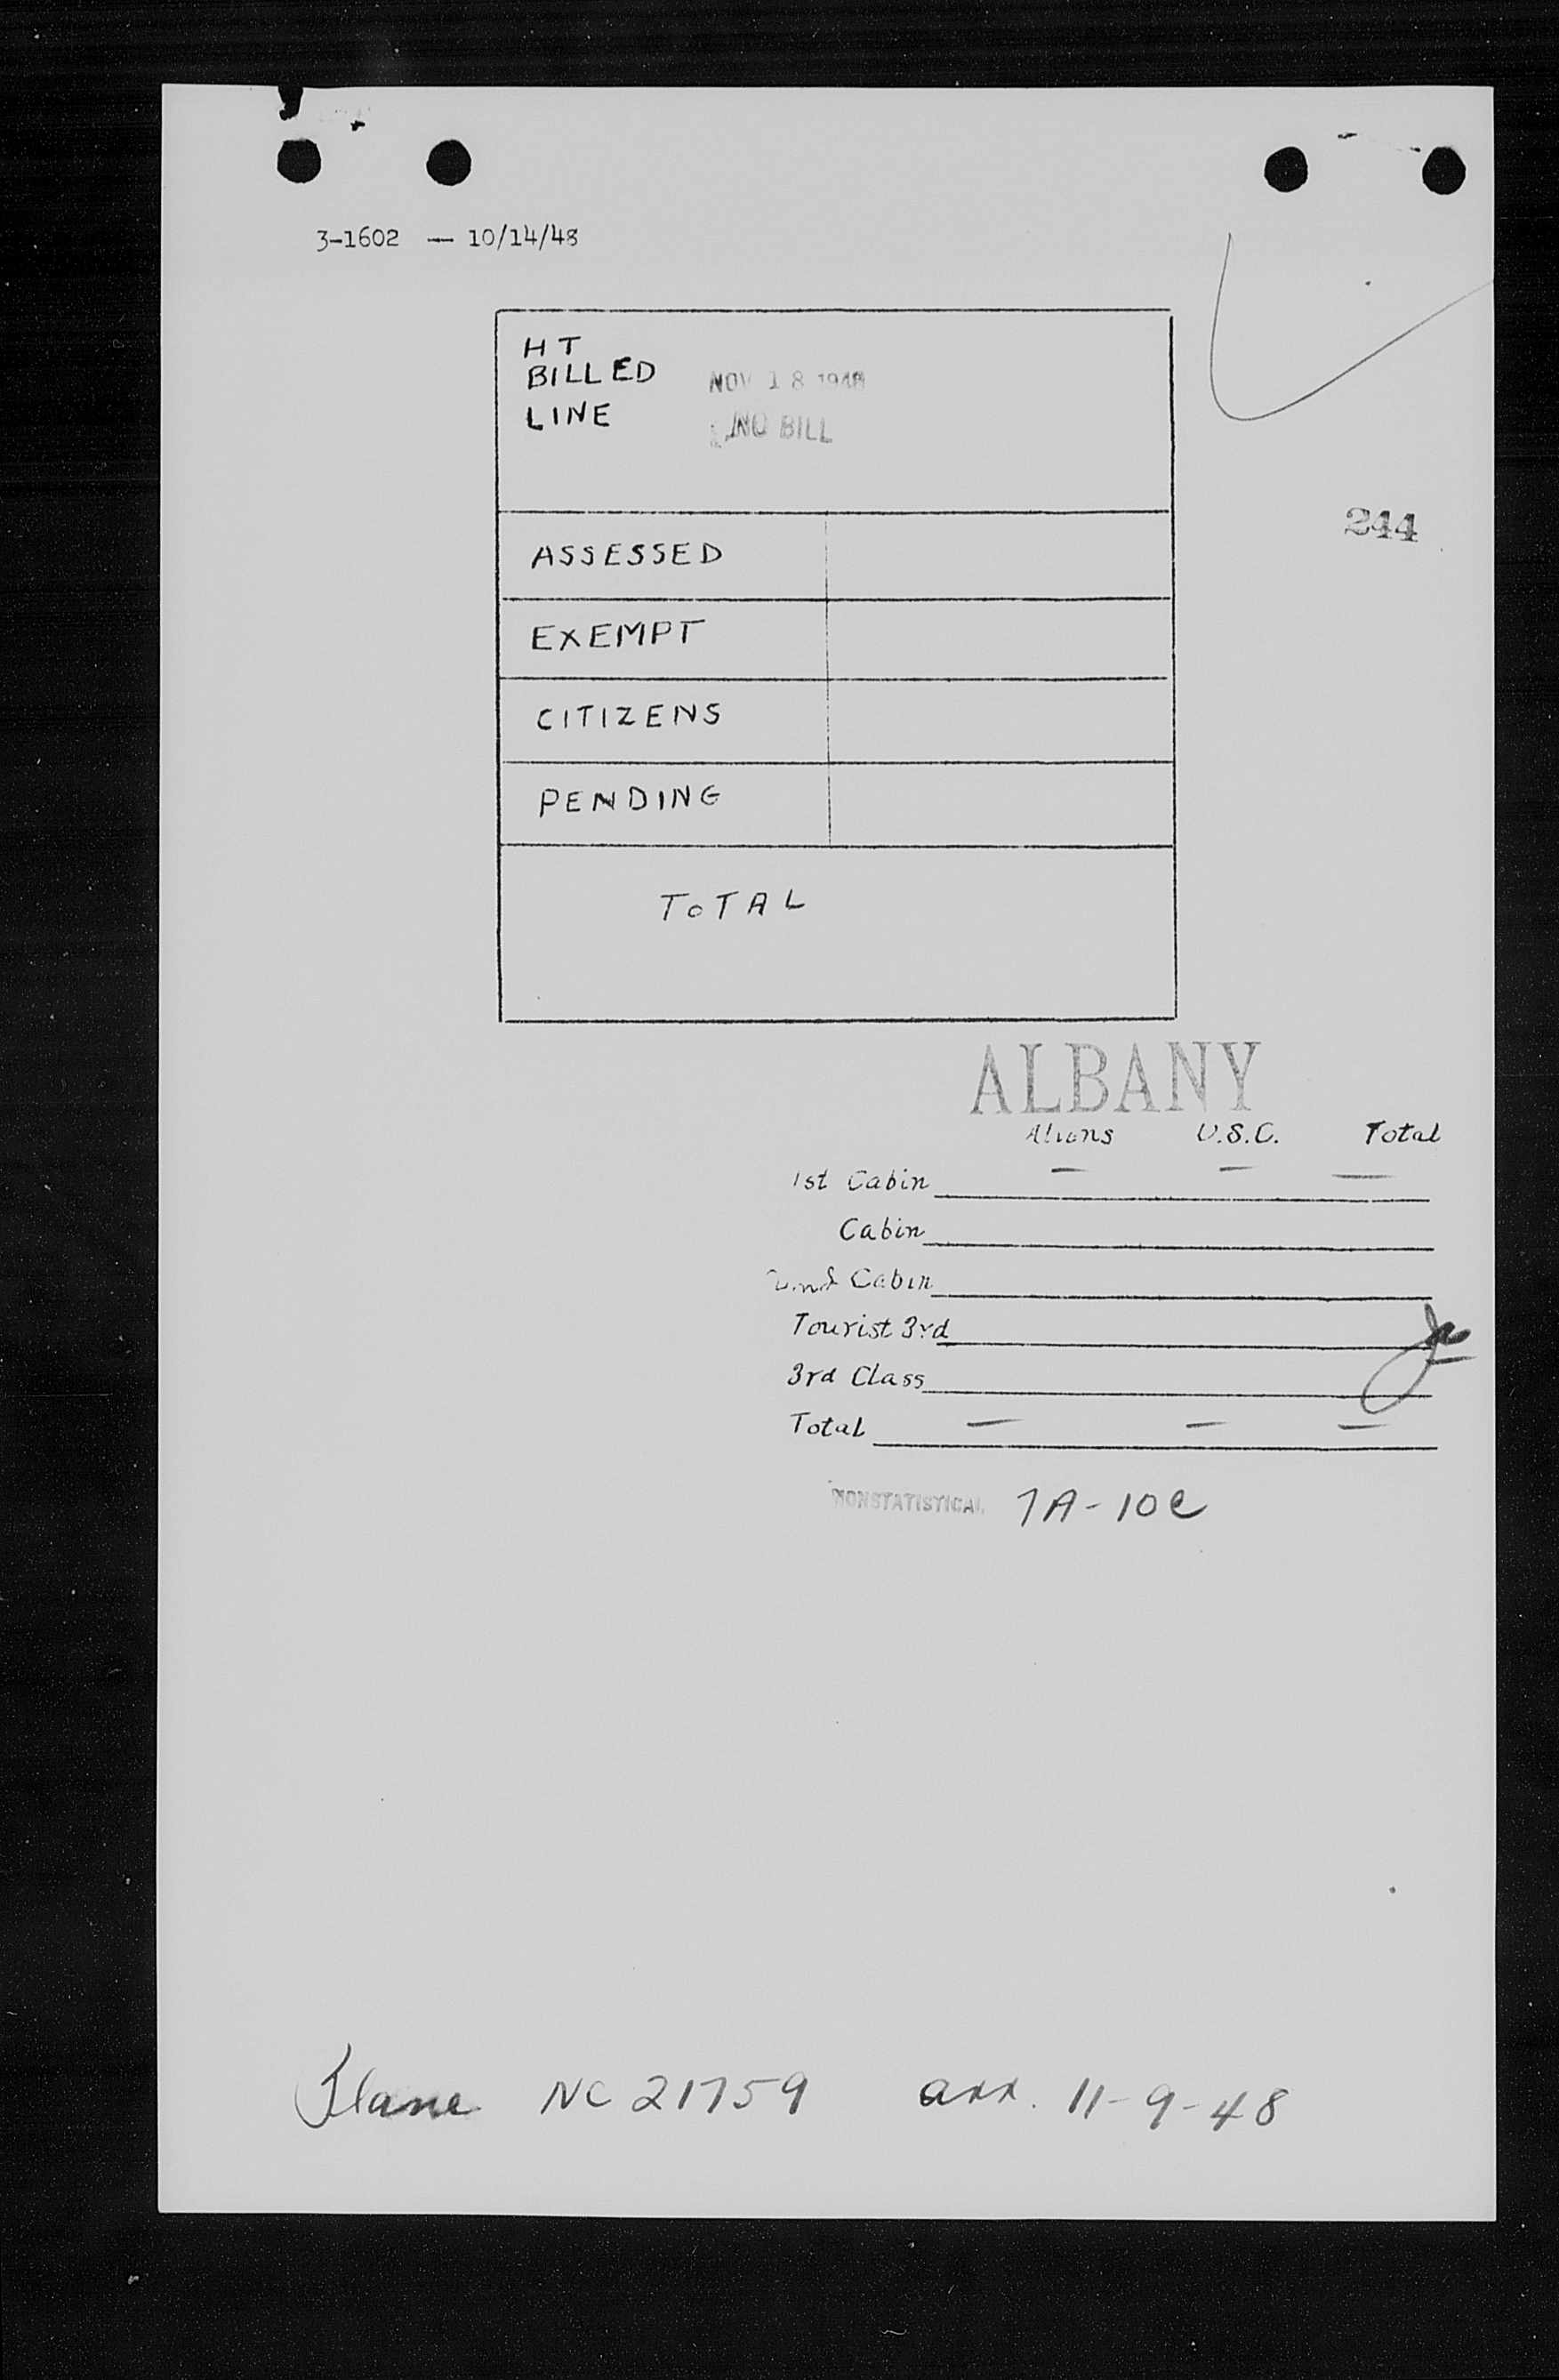 3-1602 — 10/14/48
HT
BILLED NOV 18 1948
LINE NO BILL
244
ASSESSED
EXEMPT
CITIZENS
PENDING
TOTAL
ALBANY
Aliens U.S.C. Total
1st Cabin — — —
Cabin
2nd Cabin
Tourist 3rd
3rd Class
Total — — —
NONSTATISTICAL 7A-10C
Plane NC 21759 arr. 11-9-48